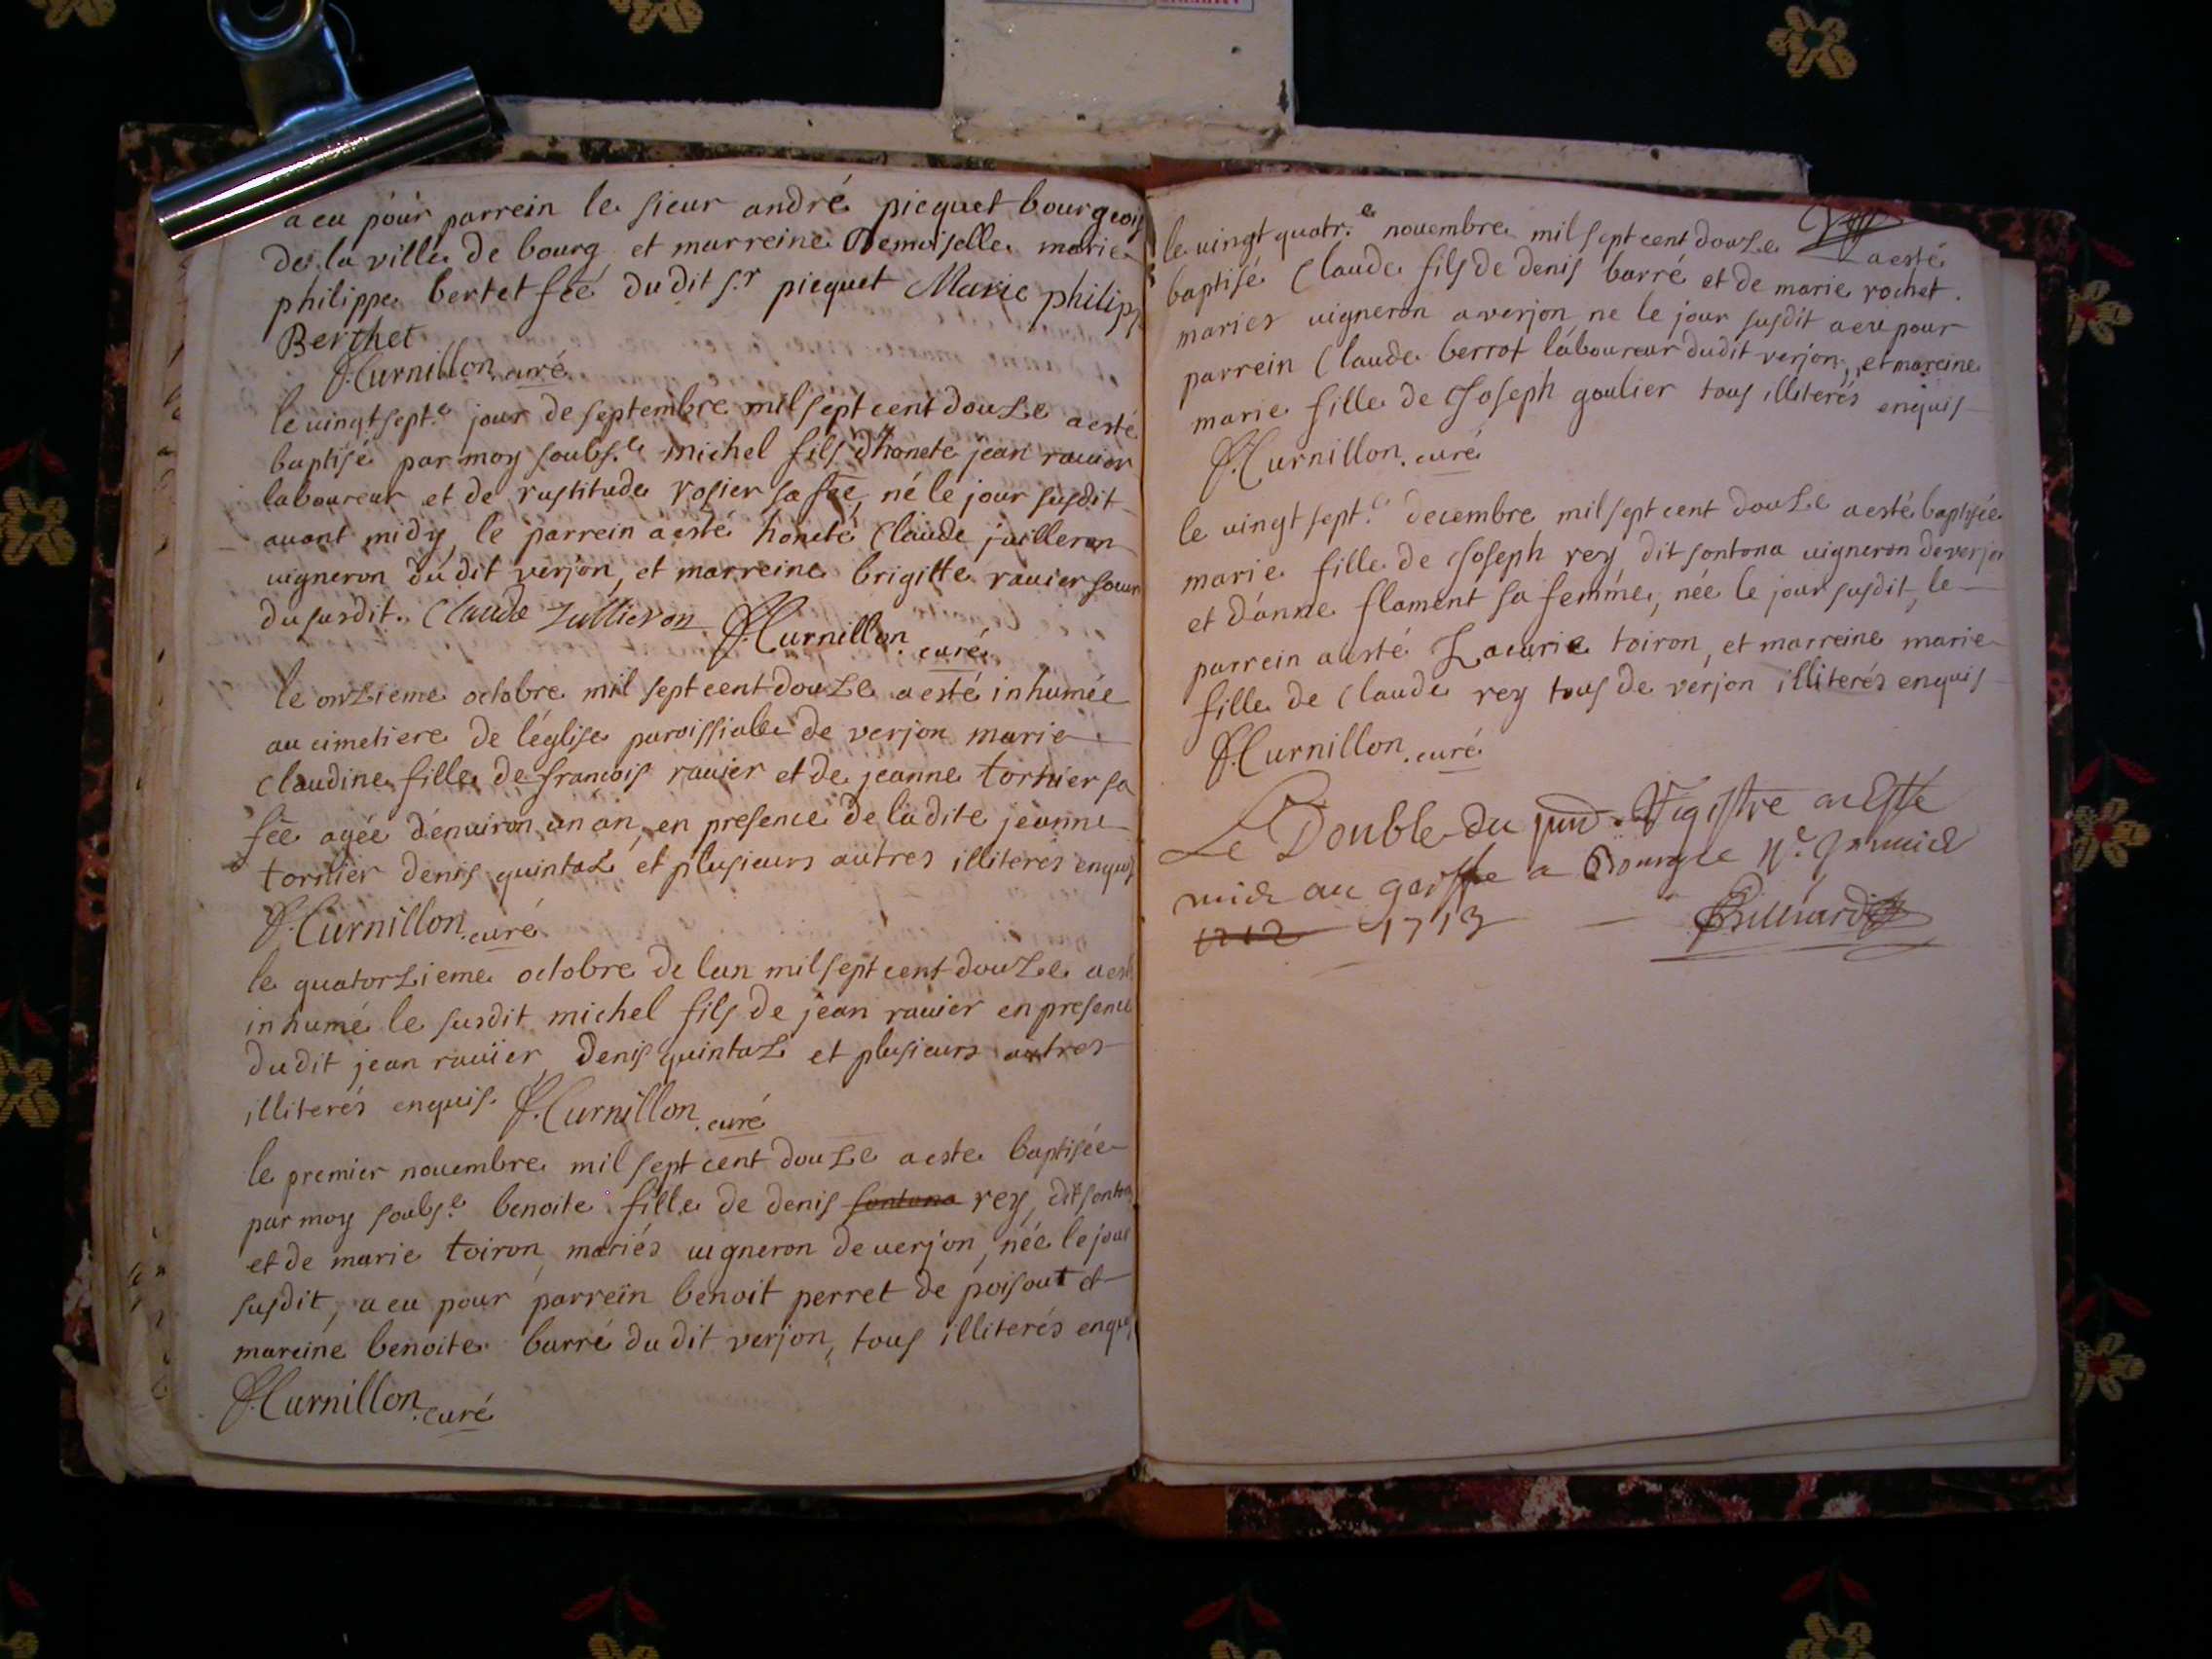 a eu pour parrein le sieur andré picquet bourgeois
de la ville de bourg et marreine Demoiselle marie
philippe bertet fẽe du dit s.r picquet Marie philipp
Berthet
J. Curnillon curé
le vingt sept.e jour de septembre mil sept cent douze a esté
baptisé par moy soubs.e michel fils d'honete jean rauier
laboureur et de rustitude rosier sa fẽe, né le jour susdit
auant midy, le parrein a esté honeté Claude juilleron
uigneron du dit verjon, et marreine brigitte rauier soeur
du susdit. Claude Jullieron J. Curnillon. curé
le onzieme octobre mil sept cent douze a esté inhumée
au cimetiere de l'église paroissialle de verjon marie
claudine fille de francois rauier et de jeanne tornier sa
fẽe agée d'enuiron un an, en presence de ladite jeanne
tornier denis quintaz et plusieurs autres illiterés enquis
J. Curnillon. curé
le quatorzieme octobre de lan mil sept cent douze a est
inhumé le susdit michel fils de jean rauier en presence
du dit jean rauier, denis quintaz et plusieurs autres
illiterés enquis. J. Curnillon. curé
le premier nouembre mil sept cent douze a este baptisée
par moy soubs.e benoite fille de denis fontana rey, dit fontan
et de marie toiron, mariés uigneron de uerjon, née le jour
susdit, a eu pour parrein benoit perret de poisout et
mareine benoite barré du dit verjon, tous illiterés enquis
J. Curnillon. curé
le uingt quatr.e nouembre mil sept cent douze a esté
baptisé Claude fils de denis barré et de marie rochet
mariés uigneron a verjon ne le jour susdit a eu pour
parrein Claude berrot laboureur dudit verjon, et mareine
marie fille de Joseph goulier tous illiterés enquis
J. Curnillon. curé
le uingt sept.e decembre mil sept cent douze a esté baptisée
marie fille de Joseph rey, dit fontana uigneron de verjon
et d'anne flament sa femme, née le jour susdit, le
parrein a esté Zacarie toiron, et marreine marie
fille de Claude rey tous de verjon illiterés enquis
J. Curnillon. curé
Le Double du Registre a Esté
au greffe a Bourg le
1712 1713